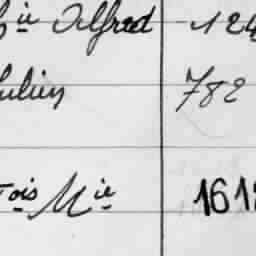 ie Alfred 124
ulien 782
ois Mie 161